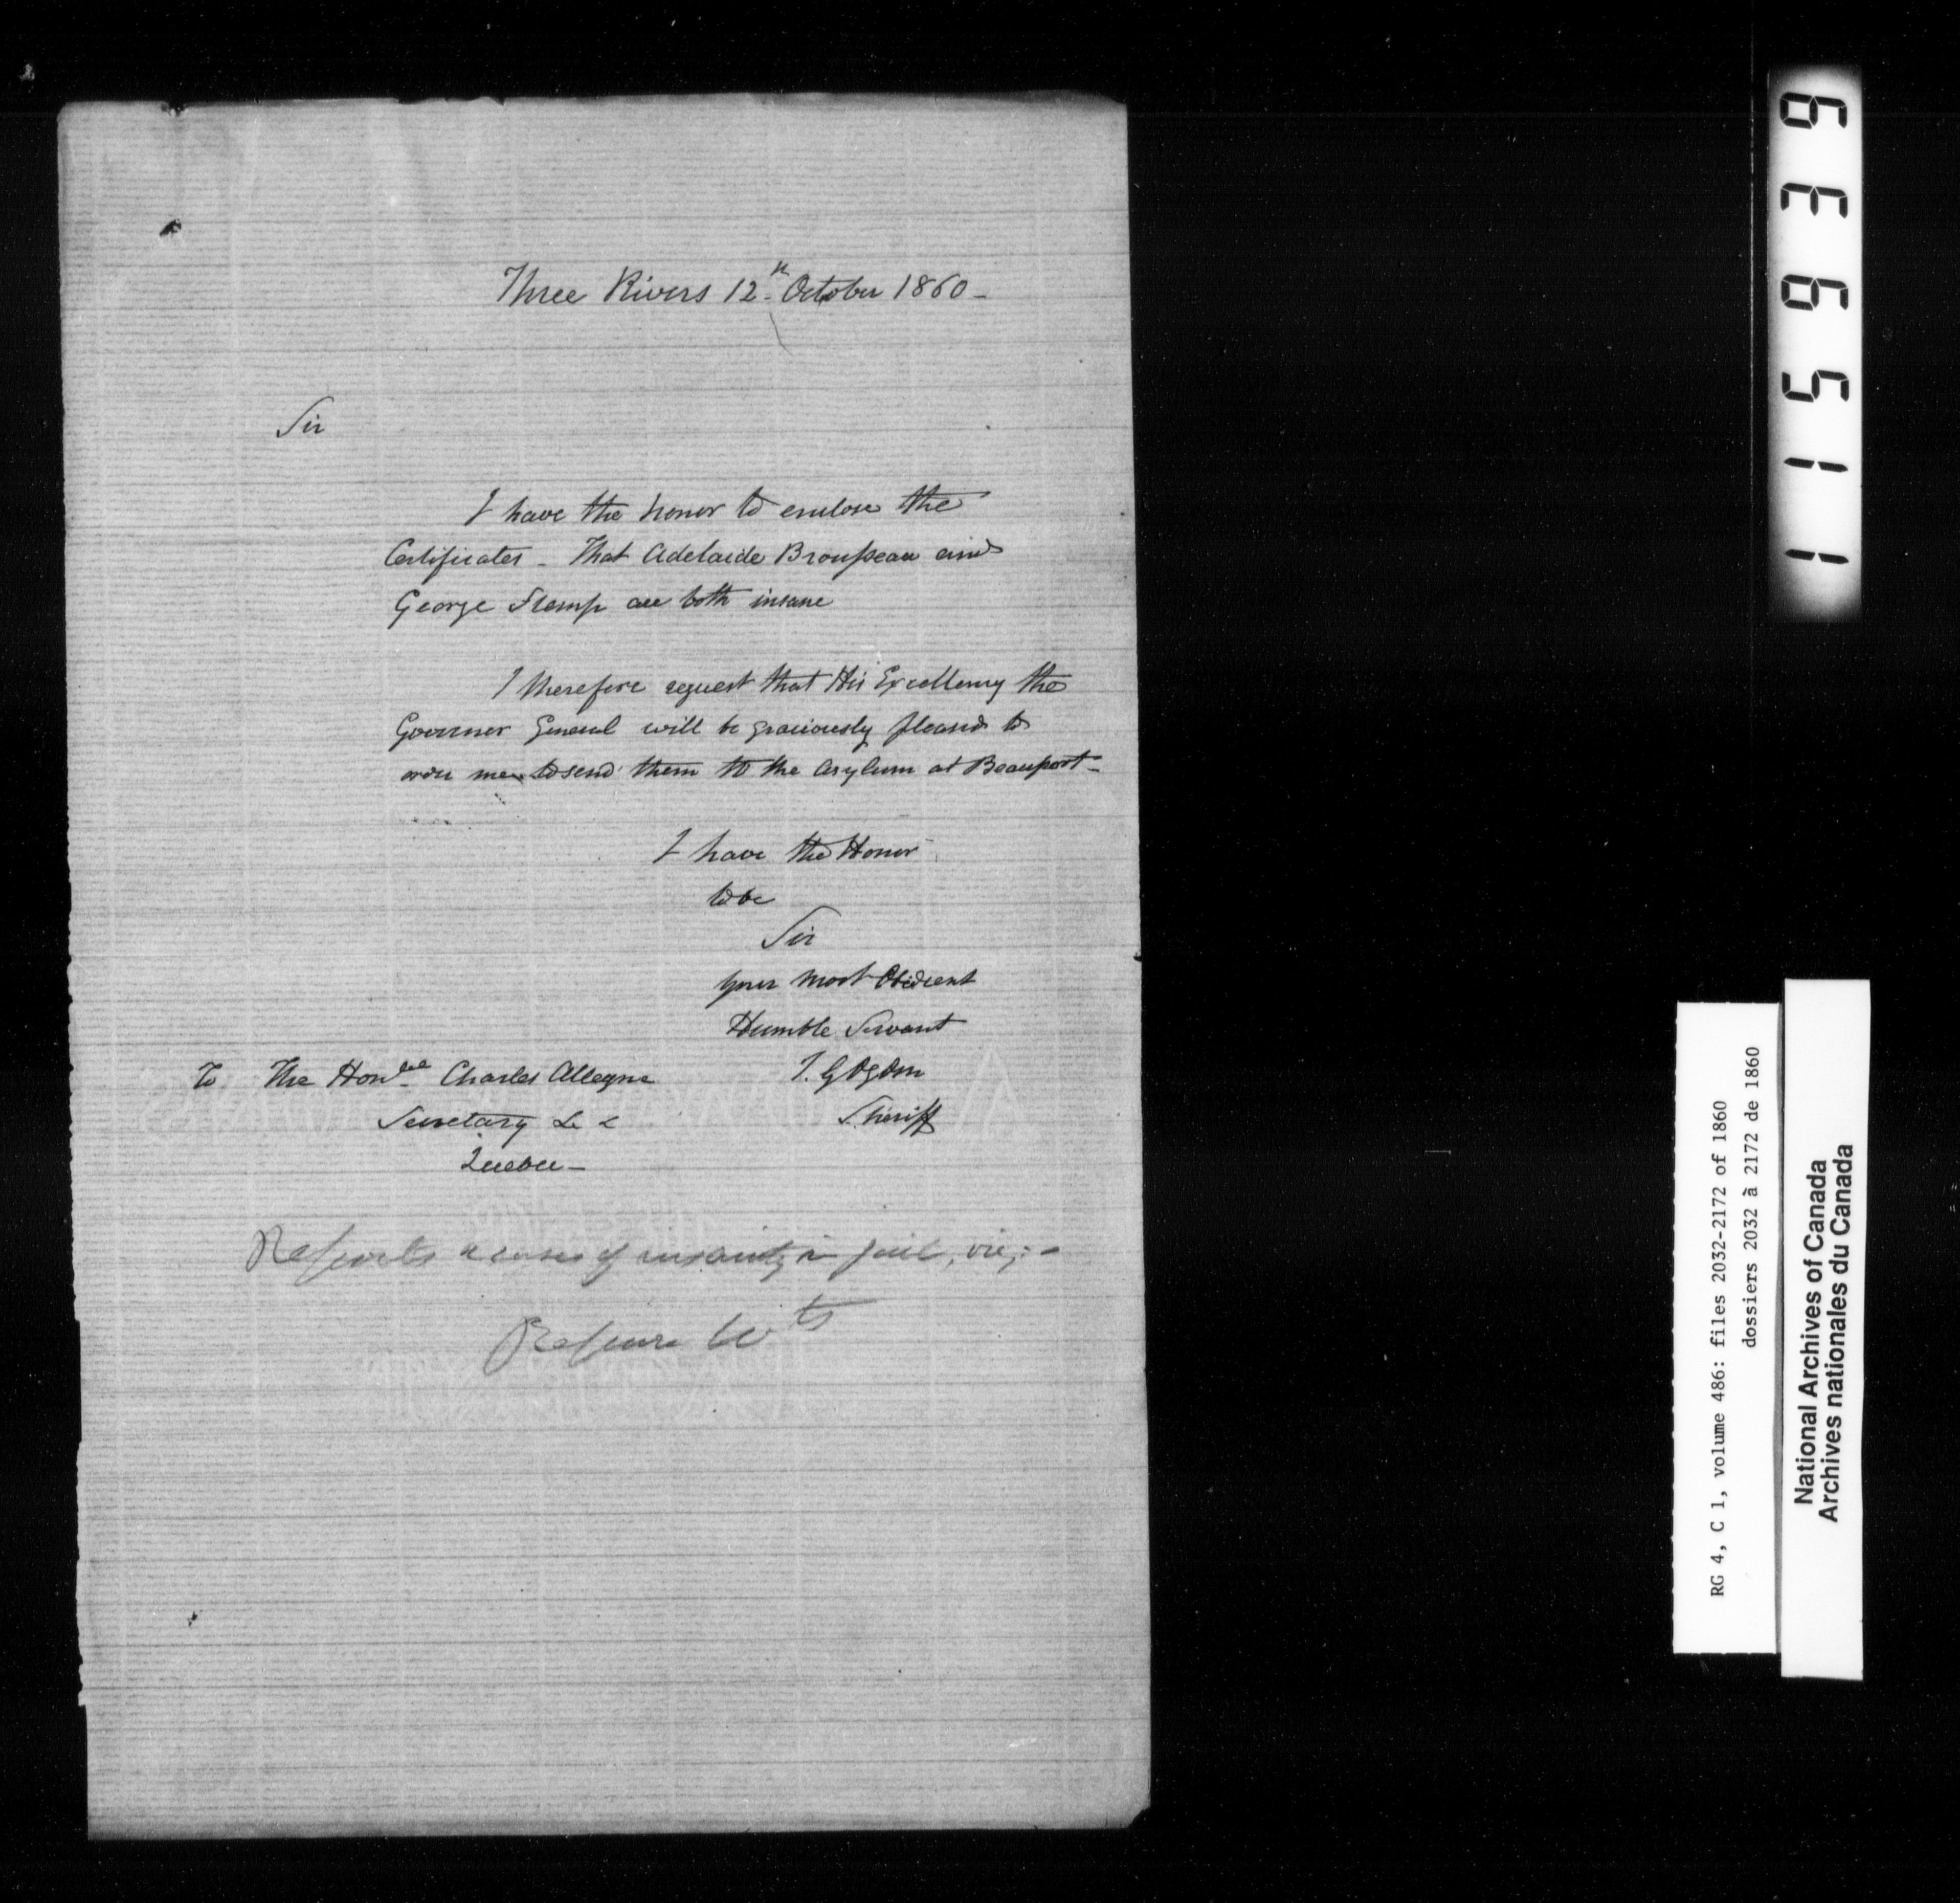 Three Rivers 12th October 1860 -
Sir
I have the honor to enclose the
Certificates - That Adelaide Brousseau and
George Stomp are both insane
I therefore request that His Excellency the
Governor General will be graciously pleased to
order me to send them to the Asylum at Beauport -
I have the Honor
to be
Sir
your most Obedient
Humble Servant
To The Honble Charles Alleyne
I. G Ogden
Secretary &c &c
Sheriff
Quebec -
Reports 2 cases of insanity in jail, viz; -
Prepare Wts
115939
RG 4, C 1, volume 486: files 2032-2172 of 1860
dossiers 2032 à 2172 de 1860
National Archives of Canada
Archives nationales du Canada